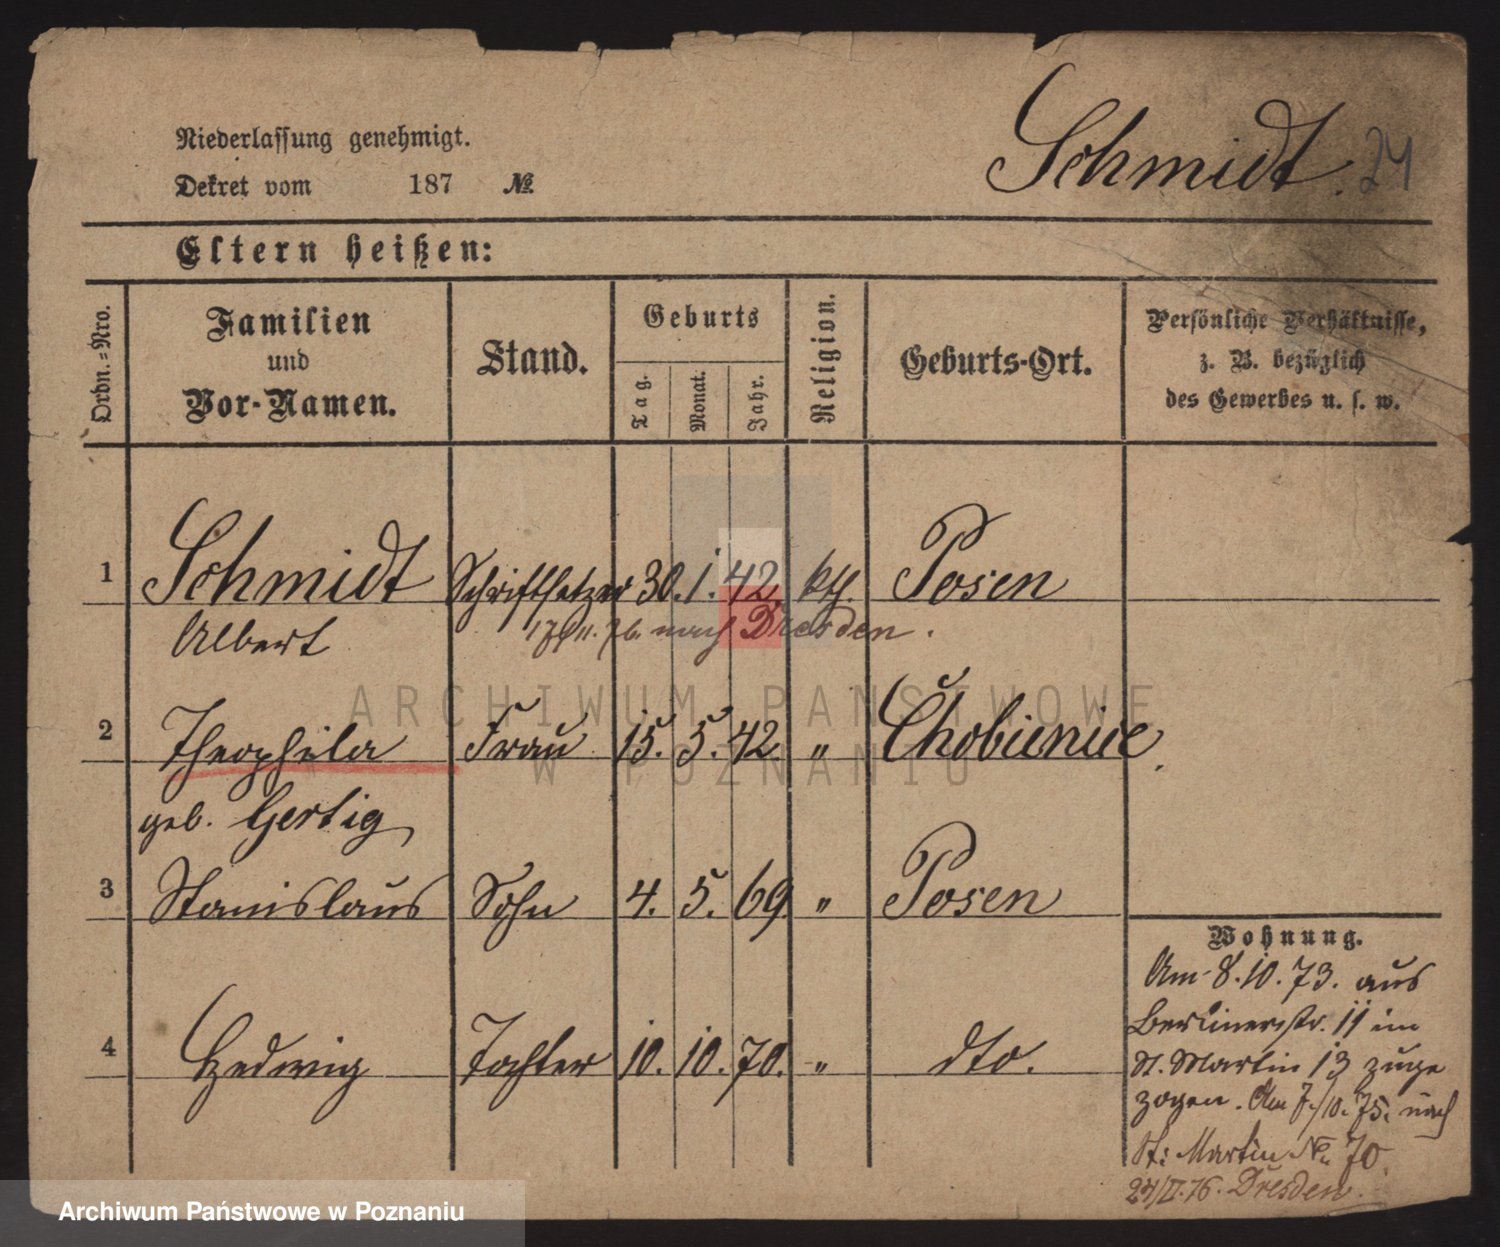 Niederlassung genehmigt.
Dekret vom 187 №
Schmidt. 24
Eltern heißen:
Ordn.-Nro.
Familien
und
Vor-Namen.
Stand.
Geburts
Tag.
Monat.
Jahr.
Religion.
Geburts-Ort.
Persönliche Verhältnisse,
z. B. bezüglich
des Gewerbes u. s. w.
1 Schmidt Schriftsetzer 30. 1. 42. kth. Posen
Albert nach Dresden.
2 Theophila Frau 15. 5. 42. " Chobienice
geb. Gertig
3 Stanislaus Sohn 4. 5. 69. " Posen
4 Hedwig Tochter 10. 10. 70. " dto.
Wohnung.
Am 8.10.73. aus
Berlinerstr. 11 im
St. Martin 13 zuge
zogen. Am 7./10. 75. nach
St: Martin № 70.
24/II.76. Dresden.
ARCHIWUM PAŃSTWOWE
W POZNANIU
Archiwum Państwowe w Poznaniu